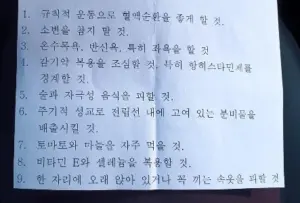 1. 규칙적 운동으로 혈액순환을 좋게 할 것.
2. 소변을 참지 말 것.
3. 온수목욕, 반신욕, 특히 좌욕을 할 것
4. 감기약 복용을 조심할 것, 특히 항히스타민제를
경계할 것.
5. 술과 자극성 음식을 피할 것.
6. 주기적 성교로 전립선 내에 고여 있는 분비물을
배출시킬 것.
7. 토마토와 마늘을 자주 먹을 것.
8. 비타민 E와 셀레늄을 복용할 것.
9. 한 자리에 오래 앉아 있거나 꼭 끼는 속옷을 피할 것